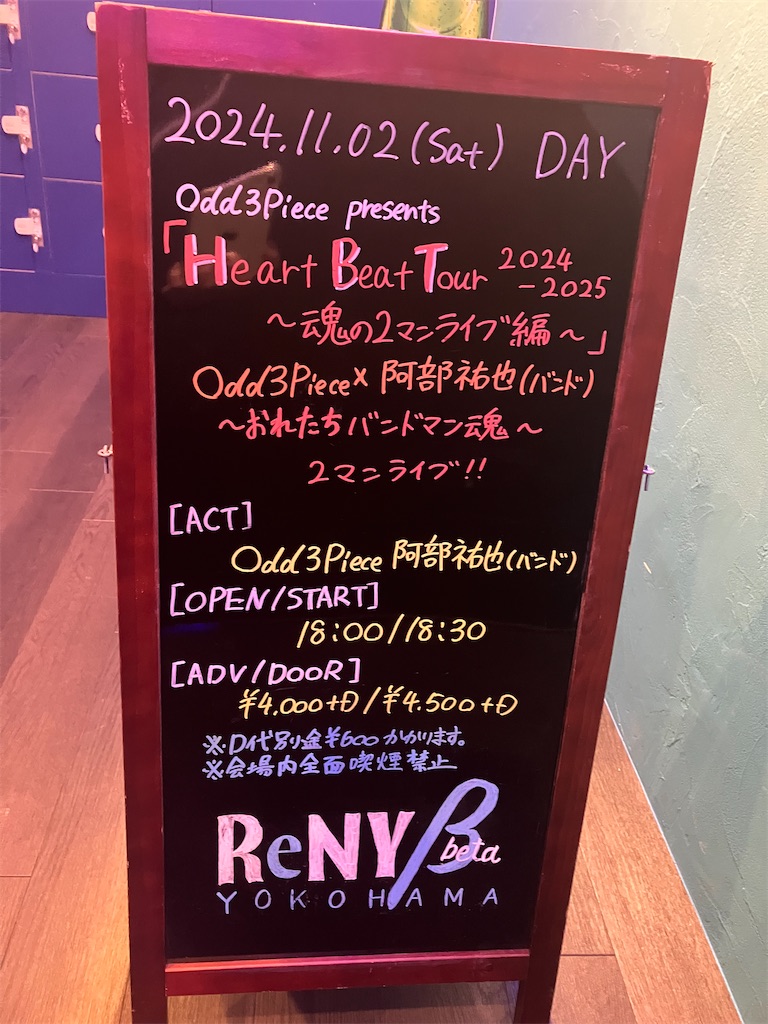 2024.11.02(Sat) DAY
Odd3Piece presents
「Heart Beat Tour 2024
-2025
～魂の2マンライブ編～」
Odd3Piece× 阿部祐也(バンド)
～おれたちバンドマン魂～
2マンライブ!!
[ACT]
Odd3Piece 阿部祐也(バンド)
[OPEN/START]
18:00//18:30
[ADV/DOOR]
¥4.000+D/¥4.500+D
※D代別金¥600かかります。
※会場内全面喫煙禁止
ReNY β
beta
YOKOHAMA